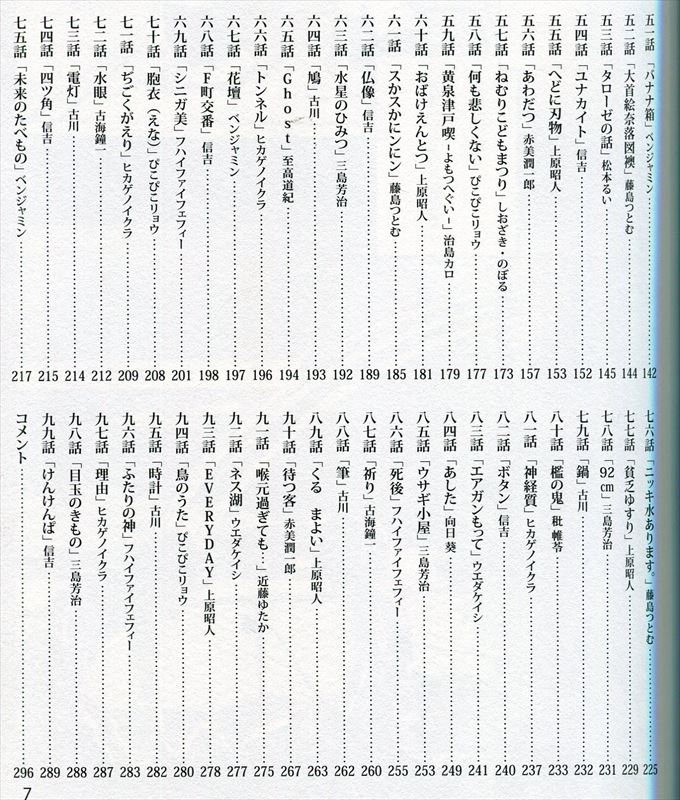 五一話「バナナ箱」ベンジャミン 142
五二話「大首絵奈落図襖」藤島つとむ 144
五三話「タローゼの話」松本るい 145
五四話「ユナカイト」信吉 152
五五話「へどに刃物」上原昭人 153
五六話「あわだつ」赤美潤一郎 157
五七話「ねむりこどもまつり」しおざき・のぼる 173
五八話「何も悲しくない」ぴこぴこリョウ 177
五九話「黄泉津戸喫－よもつへぐい－」治島カロ 179
六十話「おばけえんとつ」上原昭人 181
六一話「スかスかにンにン」藤島つとむ 185
六二話「仏像」信吉 189
六三話「水星のひみつ」三島芳治 192
六四話「鳩」古川 193
六五話「Ghost」至高道紀 194
六六話「トンネル」ヒカゲノイクラ 196
六七話「花壇」ベンジャミン 197
六八話「F町交番」信吉 198
六九話「シニガ美」フハイファイフェフィー 201
七十話「胞衣（えな）」ぴこぴこリョウ 208
七一話「ぢごくがえり」ヒカゲノイクラ 209
七二話「水眼」古海鐘一 212
七三話「電灯」古川 214
七四話「四ツ角」信吉 215
七五話「未来のたべもの」ベンジャミン 217
七六話「ニッキ水あります。」藤島つとむ 225
七七話「貧乏ゆすり」上原昭人 229
七八話「92㎝」三島芳治 231
七九話「鍋」古川 232
八十話「檻の鬼」秕帷苓 233
八一話「神経質」ヒカゲノイクラ 237
八二話「ボタン」信吉 240
八三話「エアガンもって」ウエダケイシ 241
八四話「あした」向日葵 249
八五話「ウサギ小屋」三島芳治 253
八六話「死後」フハイファイフェフィー 255
八七話「祈り」古海鐘一 260
八八話「筆」古川 262
八九話「くる　まよい」上原昭人 263
九十話「待つ客」赤美潤一郎 267
九一話「喉元過ぎても‥」近藤ゆたか 275
九二話「ネス湖」ウエダケイシ 277
九三話「EVERYDAY」上原昭人 278
九四話「鳥のうた」ぴこぴこリョウ 280
九五話「時計」古川 282
九六話「ふたりの神」フハイファイフェフィー 283
九七話「理由」ヒカゲノイクラ 287
九八話「目玉のきもの」三島芳治 288
九九話「けんけんぱ」信吉 289
コメント 296
7